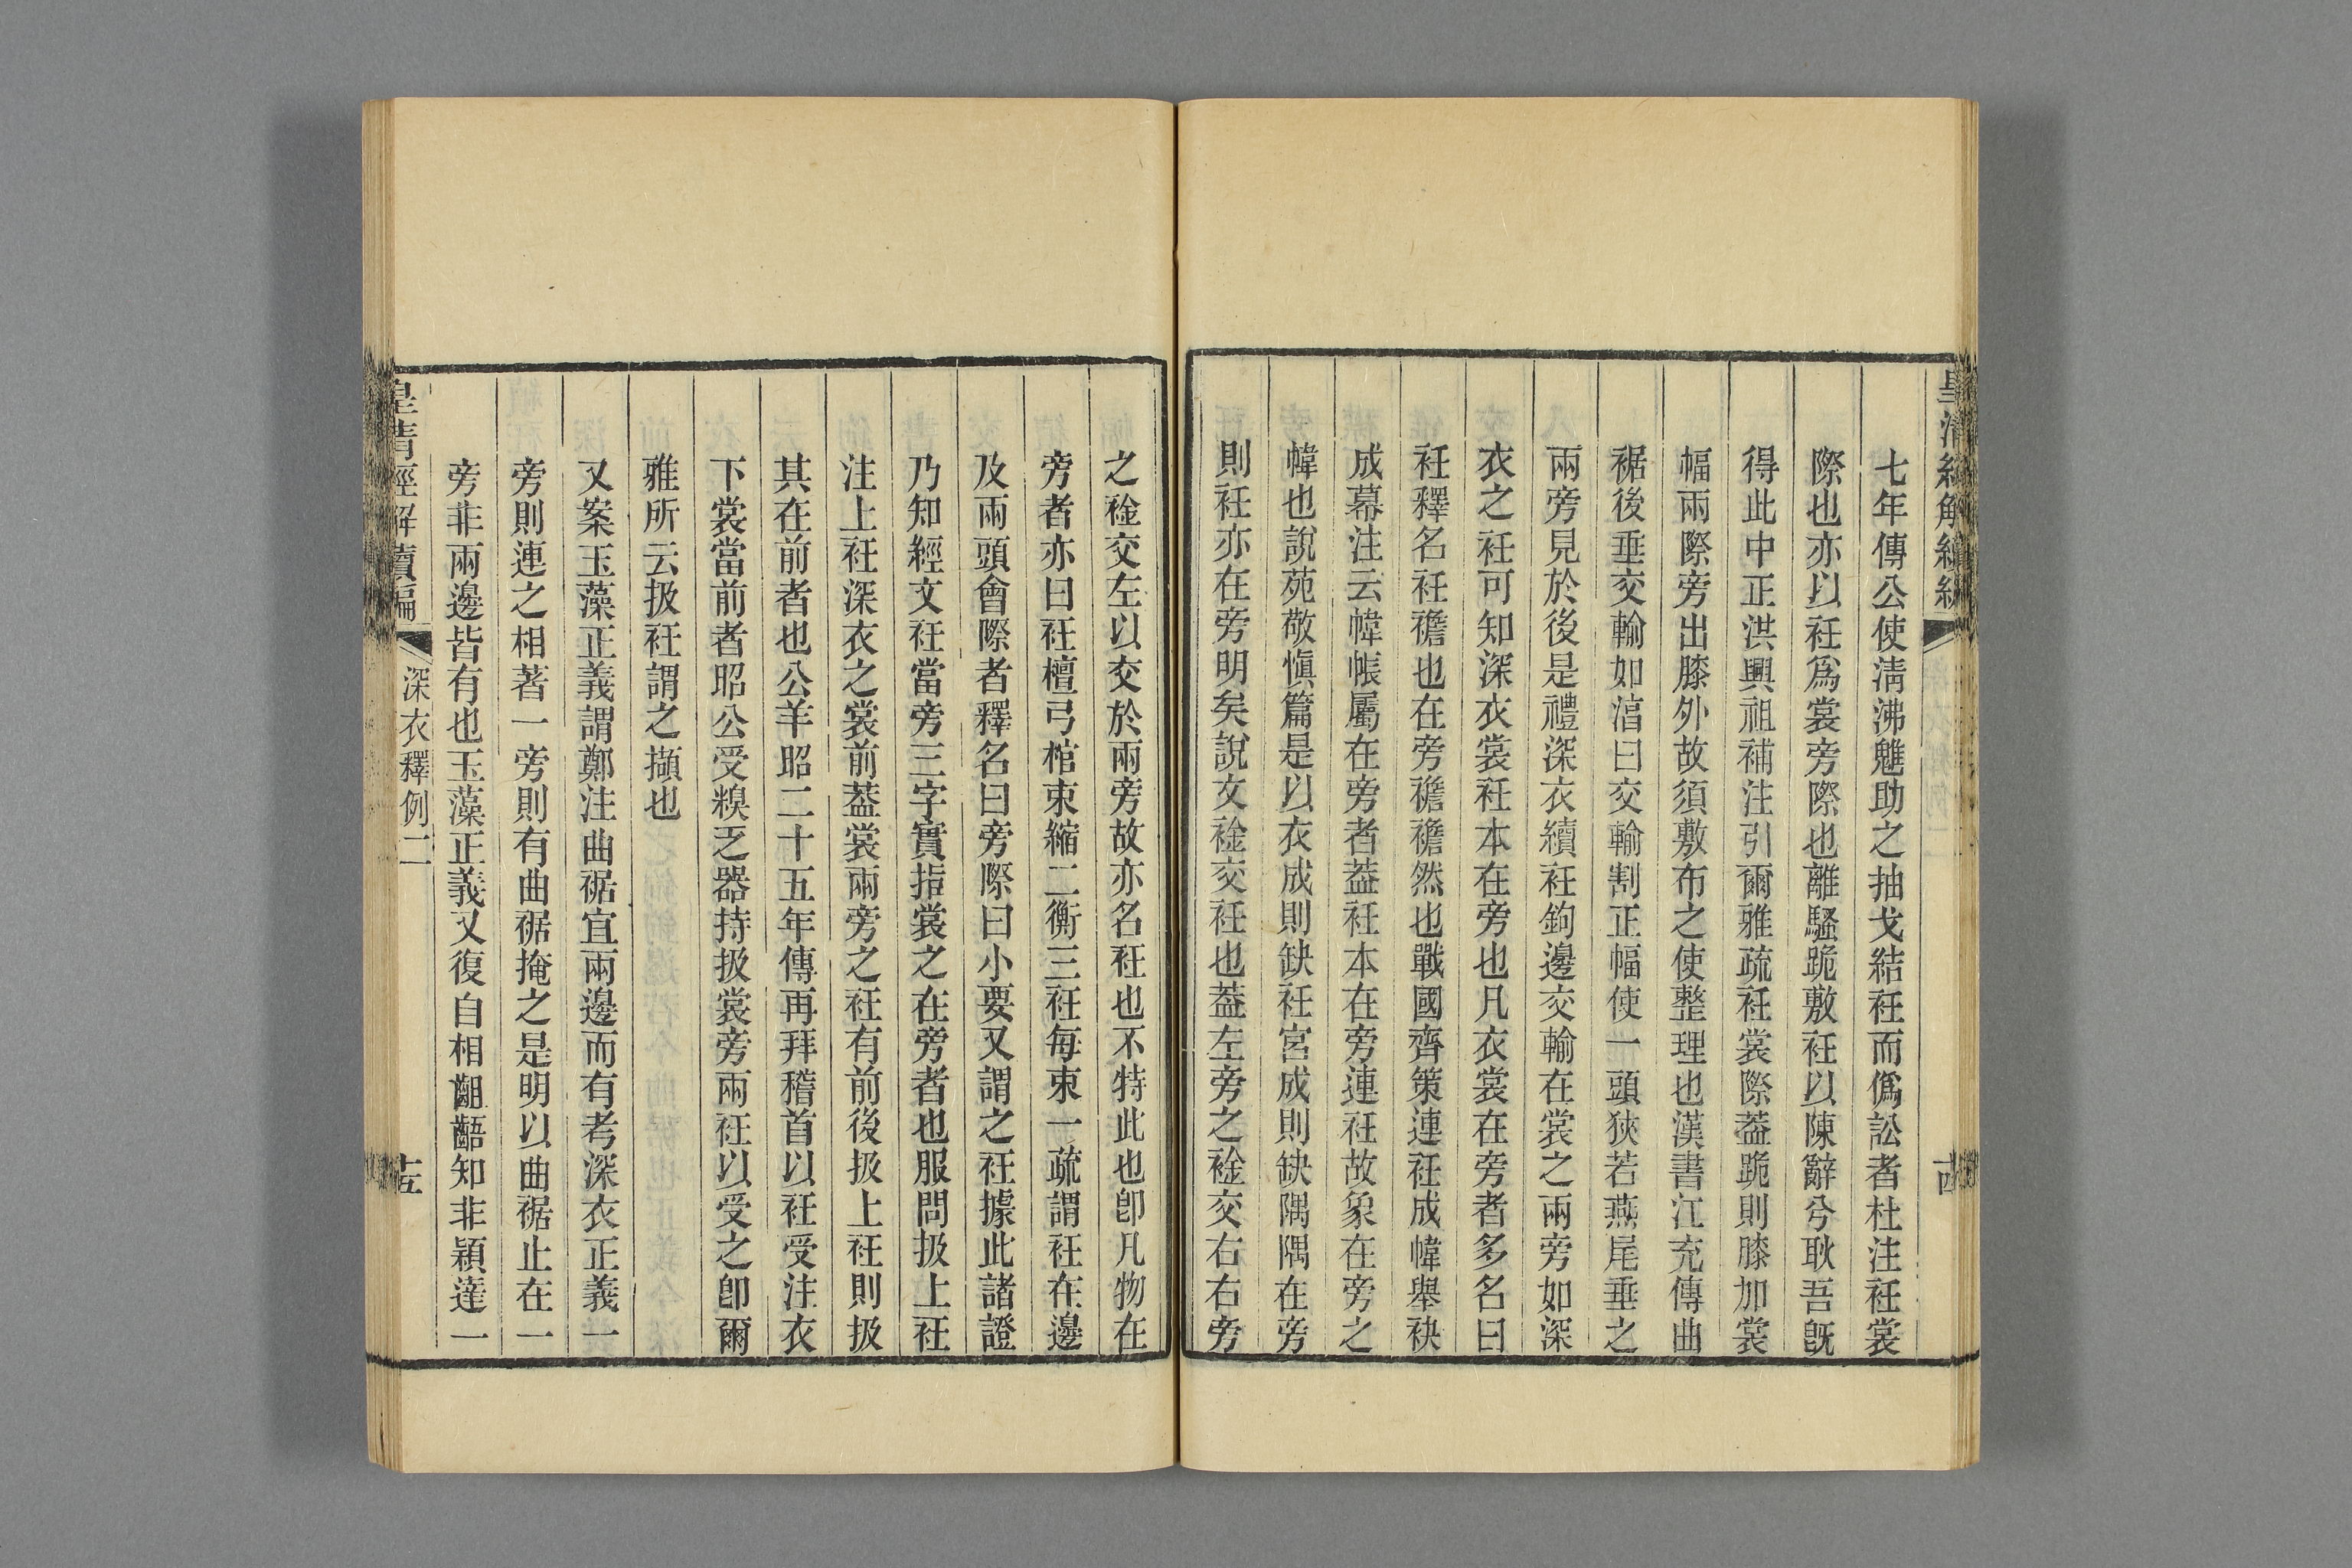 七年傳公使淸沸魋助之抽戈結衽而僞訟者杜注衽裳
際也亦以衽爲裳旁際也離騷跪敷衽以陳辭兮耿吾旣
得此中正洪興祖補注引爾雅疏衽裳際葢跪則膝加裳
幅兩際旁出膝外故須敷布之使整理也漢書江充傳曲
裾後垂交輸如湻曰交輸割正幅使一頭狹若燕尾垂之
兩旁見於後是禮深衣續衽鉤邊交輸在裳之兩旁如深
衣之衽可知深衣裳衽本在旁也凡衣裳在旁者多名曰
衽釋名衽襜也在旁襜襜然也戰國齊策連衽成幃舉袂
成幕注云幃帳屬在旁者葢衽本在旁連衽故象在旁之
幃也說苑敬愼篇是以衣成則缺衽宮成則缺隅隅在旁
則衽亦在旁明矣說文䘳交衽也葢左旁之䘳交右右旁
之䘳交左以交於兩旁故亦名衽也不特此也卽凡物在
旁者亦曰衽檀弓棺束縮二衡三衽每束一疏謂衽在邊
及兩頭會際者釋名曰旁際曰小要又謂之衽據此諸證
乃知經文衽當旁三字實指裳之在旁者也服問扱上衽
注上衽深衣之裳前葢裳兩旁之衽有前後扱上衽則扱
其在前者也公羊昭二十五年傳再拜稽首以衽受注衣
下裳當前者昭公受糗乏器持扱裳旁兩衽以受之卽爾
雅所云扱衽謂之擷也
又案玉藻正義謂鄭注曲裾宜兩邊而有考深衣正義一
旁則連之相著一旁則有曲裾掩之是明以曲裾止在一
旁非兩邊皆有也玉藻正義又復自相齟齬知非穎達一
皇淸經解續編
深衣釋例二
十五